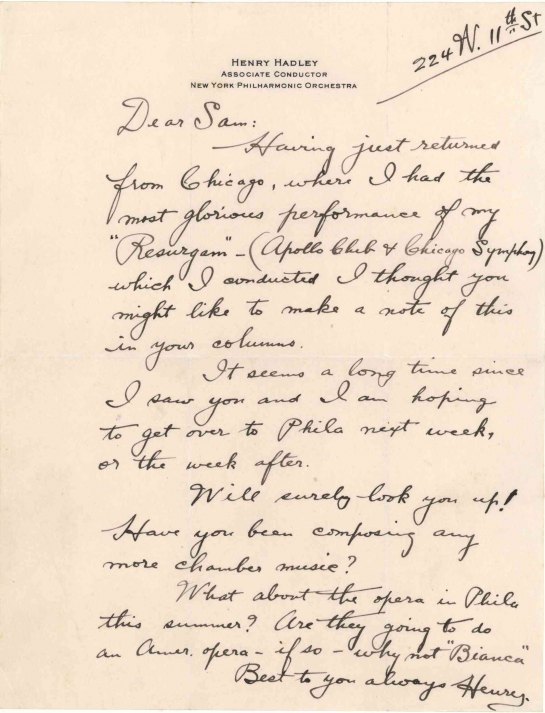 224 W. 11th St
HENRY HADLEY
ASSOCIATE CONDUCTOR
NEW YORK PHILHARMONIC ORCHESTRA
Dear Sam:
Having just returned
from Chicago, where I had the
most glorious performance of my
"Resurgam" - (Apollo Club & Chicago Symphony)
which I conducted I thought you
might like to make a note of this
in your columns.
It seems a long time since
I saw you and I am hoping
to get over to Phila next week,
or the week after.
Will surely look you up!
Have you been composing any
more chamber music?
What about the opera in Phila
this summer? Are they going to do
an Amer. opera - if so - why not "Bianca"
Best to you always Henry.